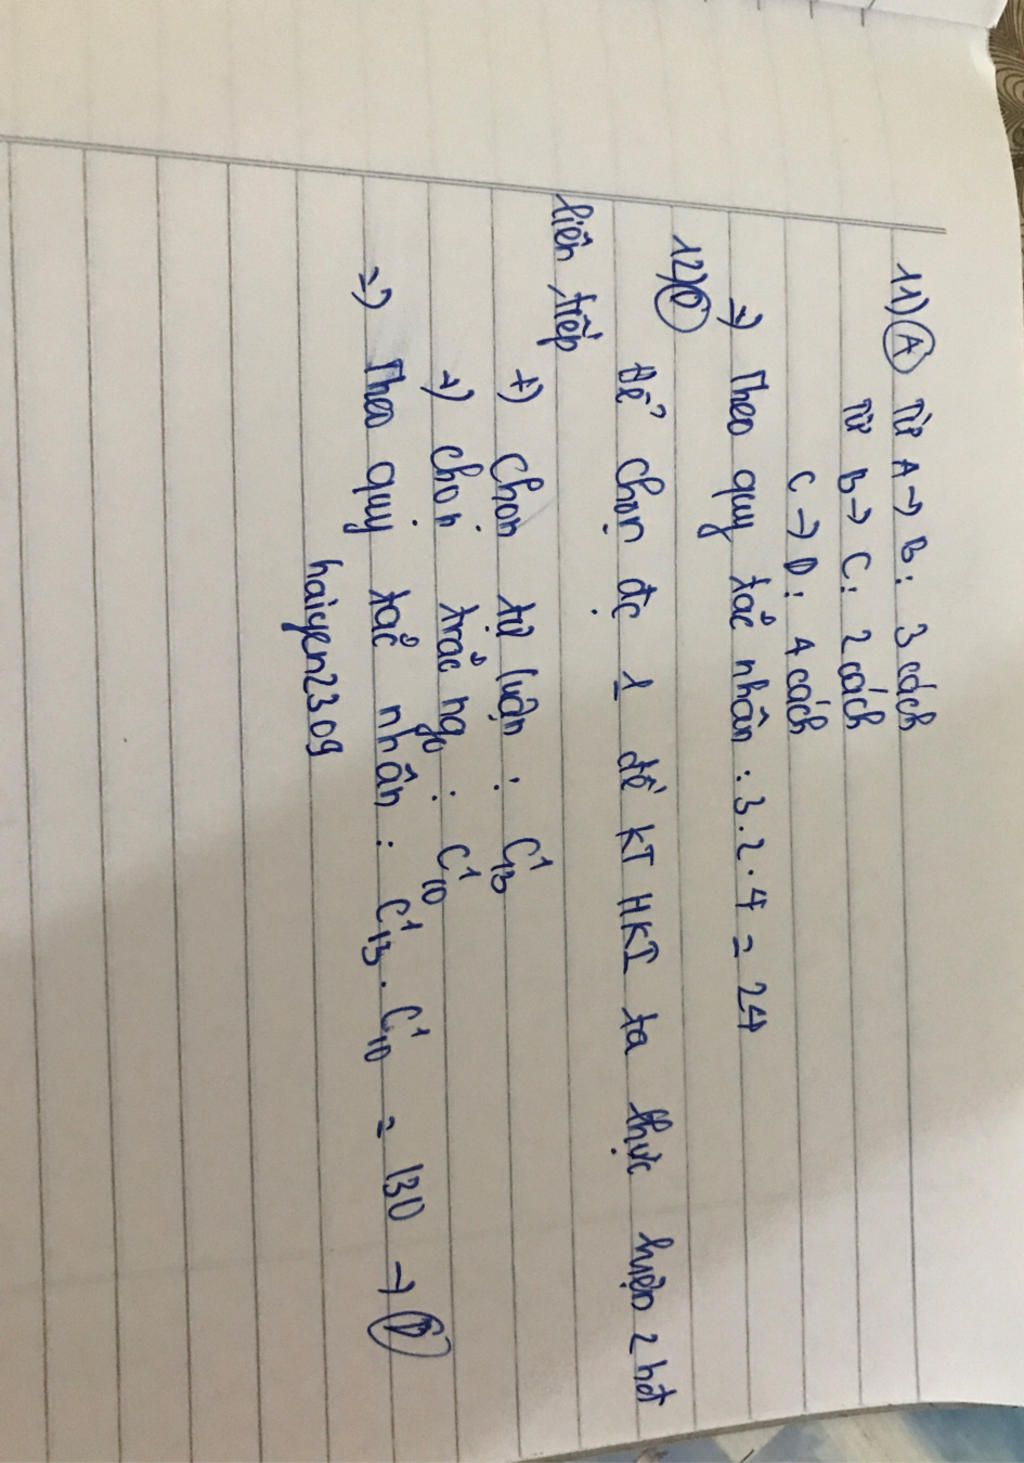 11) A Từ A → B: 3 cách
Từ B → C: 2 cách
C → D: 4 cách
=) Theo quy tắc nhân : 3.2.4 = 24
12)
Để chọn đc 1 đề KT HKI ta thực hiện 2 hđ
liên tiếp
+) Chọn tự luận : C¹₁₃
+) chọn trắc ng₀ : C¹₁₀
=) Theo quy tắc nhân : C¹₁₃ . C¹₁₀ = 130 →
haiyen2309